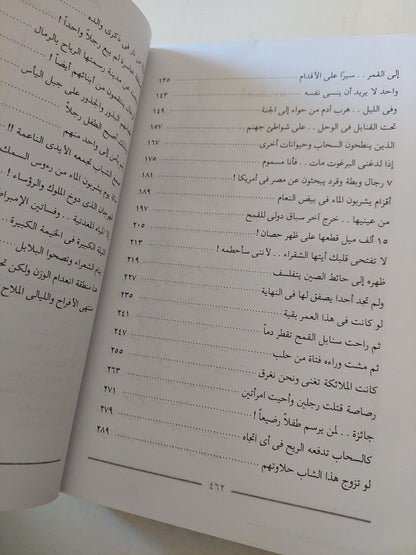 إلى القمر . . سيرًا على الأقدام ١٣٥
واحد لا يريد أن ينسى نفسه ١٤٣
وفى الليل . . هرب آدم من حواء إلى الجنة ١٤٩
تحت القنابل فى الوحل . . على شواطئ جهنم ١٥٧
الذين ينطحون السحاب وحيوانات أخرى ١٦٧
إذا لدغنى البرغوت مات . . فأنا مسموم ١٧٥
٧ رجال وبطة وقرد يبحثون عن مصر فى أمريكا ! ١٨١
أقزام يشربون الماء فى بيض النعام ١٨٩
من عينيها . . خرج آخر سباق دولى للقمح ١٩٧
١٥ ألف ميل قطعها على ظهر حصان ! ٢٠٥
لا تفتحى قلبك أيتها الشقراء . . لأننى سأحطمه ! ٢١٣
ظهره إلى حائط الصين يتفلسف ٢١٩
ولم تجد أحدا يصفق لها فى النهاية ٢٢٧
لو كانت فى هذا العمر بقية ٢٣٥
ثم راحت سنابل القمح تقطر دماً ٢٤١
ثم مشت وراءه فتاة من حلب ٢٤٧
كانت الملائكة تغنى ونحن نغرق ٢٥٥
رصاصة قتلت رجلين وأحيت امرأتين ٢٦٣
جائزة . . لمن يرسم طفلاً رضيعاً ! ٢٧١
كالسحاب تدفعه الريح فى أى اتجاه ٢٧٩
لو تزوج هذا الشاب حلاوتهم ٢٨٩
٤٦٢
نار فى ذكرى والده
لم يبع رجلاً واحداً !
عن مدينة رسمتها الرياح بالرمال
ينتقمون من أبنائهم أيضاً !
النور والجذور على جبل اليأس
يصبح الطفل رجلاً
بأس إلى واحد منهم
الشباب تجمعه الأيدى الناعمة !!
يوم يشربون الماء من رءوس السمك
الذى دوخ الملوك والرؤساء !
المعدنية . . وفساتين
الليلة الكبيرة فى الخيمة الكبيرة
الشعراء وتصحو البلابل
منطقة انعدام الوزن ولكن
منتهى الأفراح والليالى الملاح